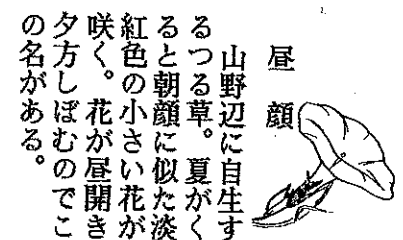 昼顔
山野辺に自生す
るつる草。夏がく
ると朝顔に似た淡
紅色の小さい花が
咲く。花が昼開き
夕方しぼむのでこ
の名がある。